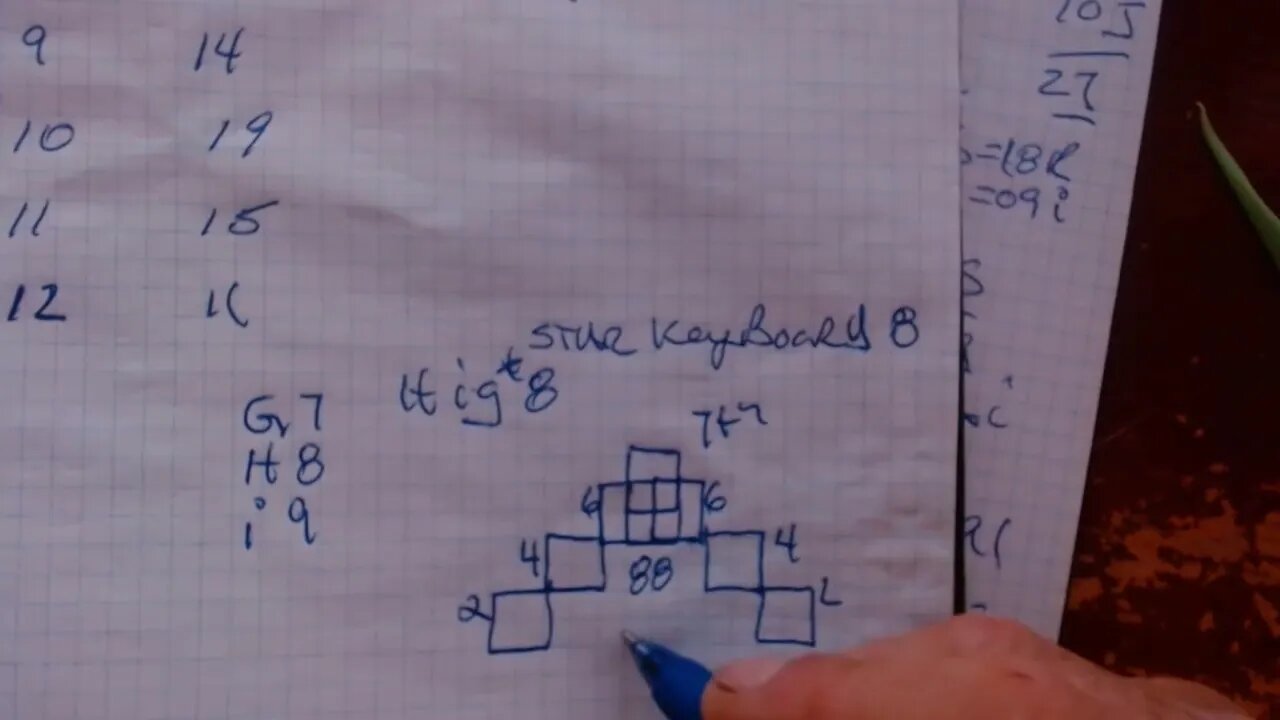 9 14
10 19
11 15
12
105
27
=18R
=09i
STUR KeyBOARd 8
Hig*8
G 7
H 8
i 9
6 6
4 88 4
2